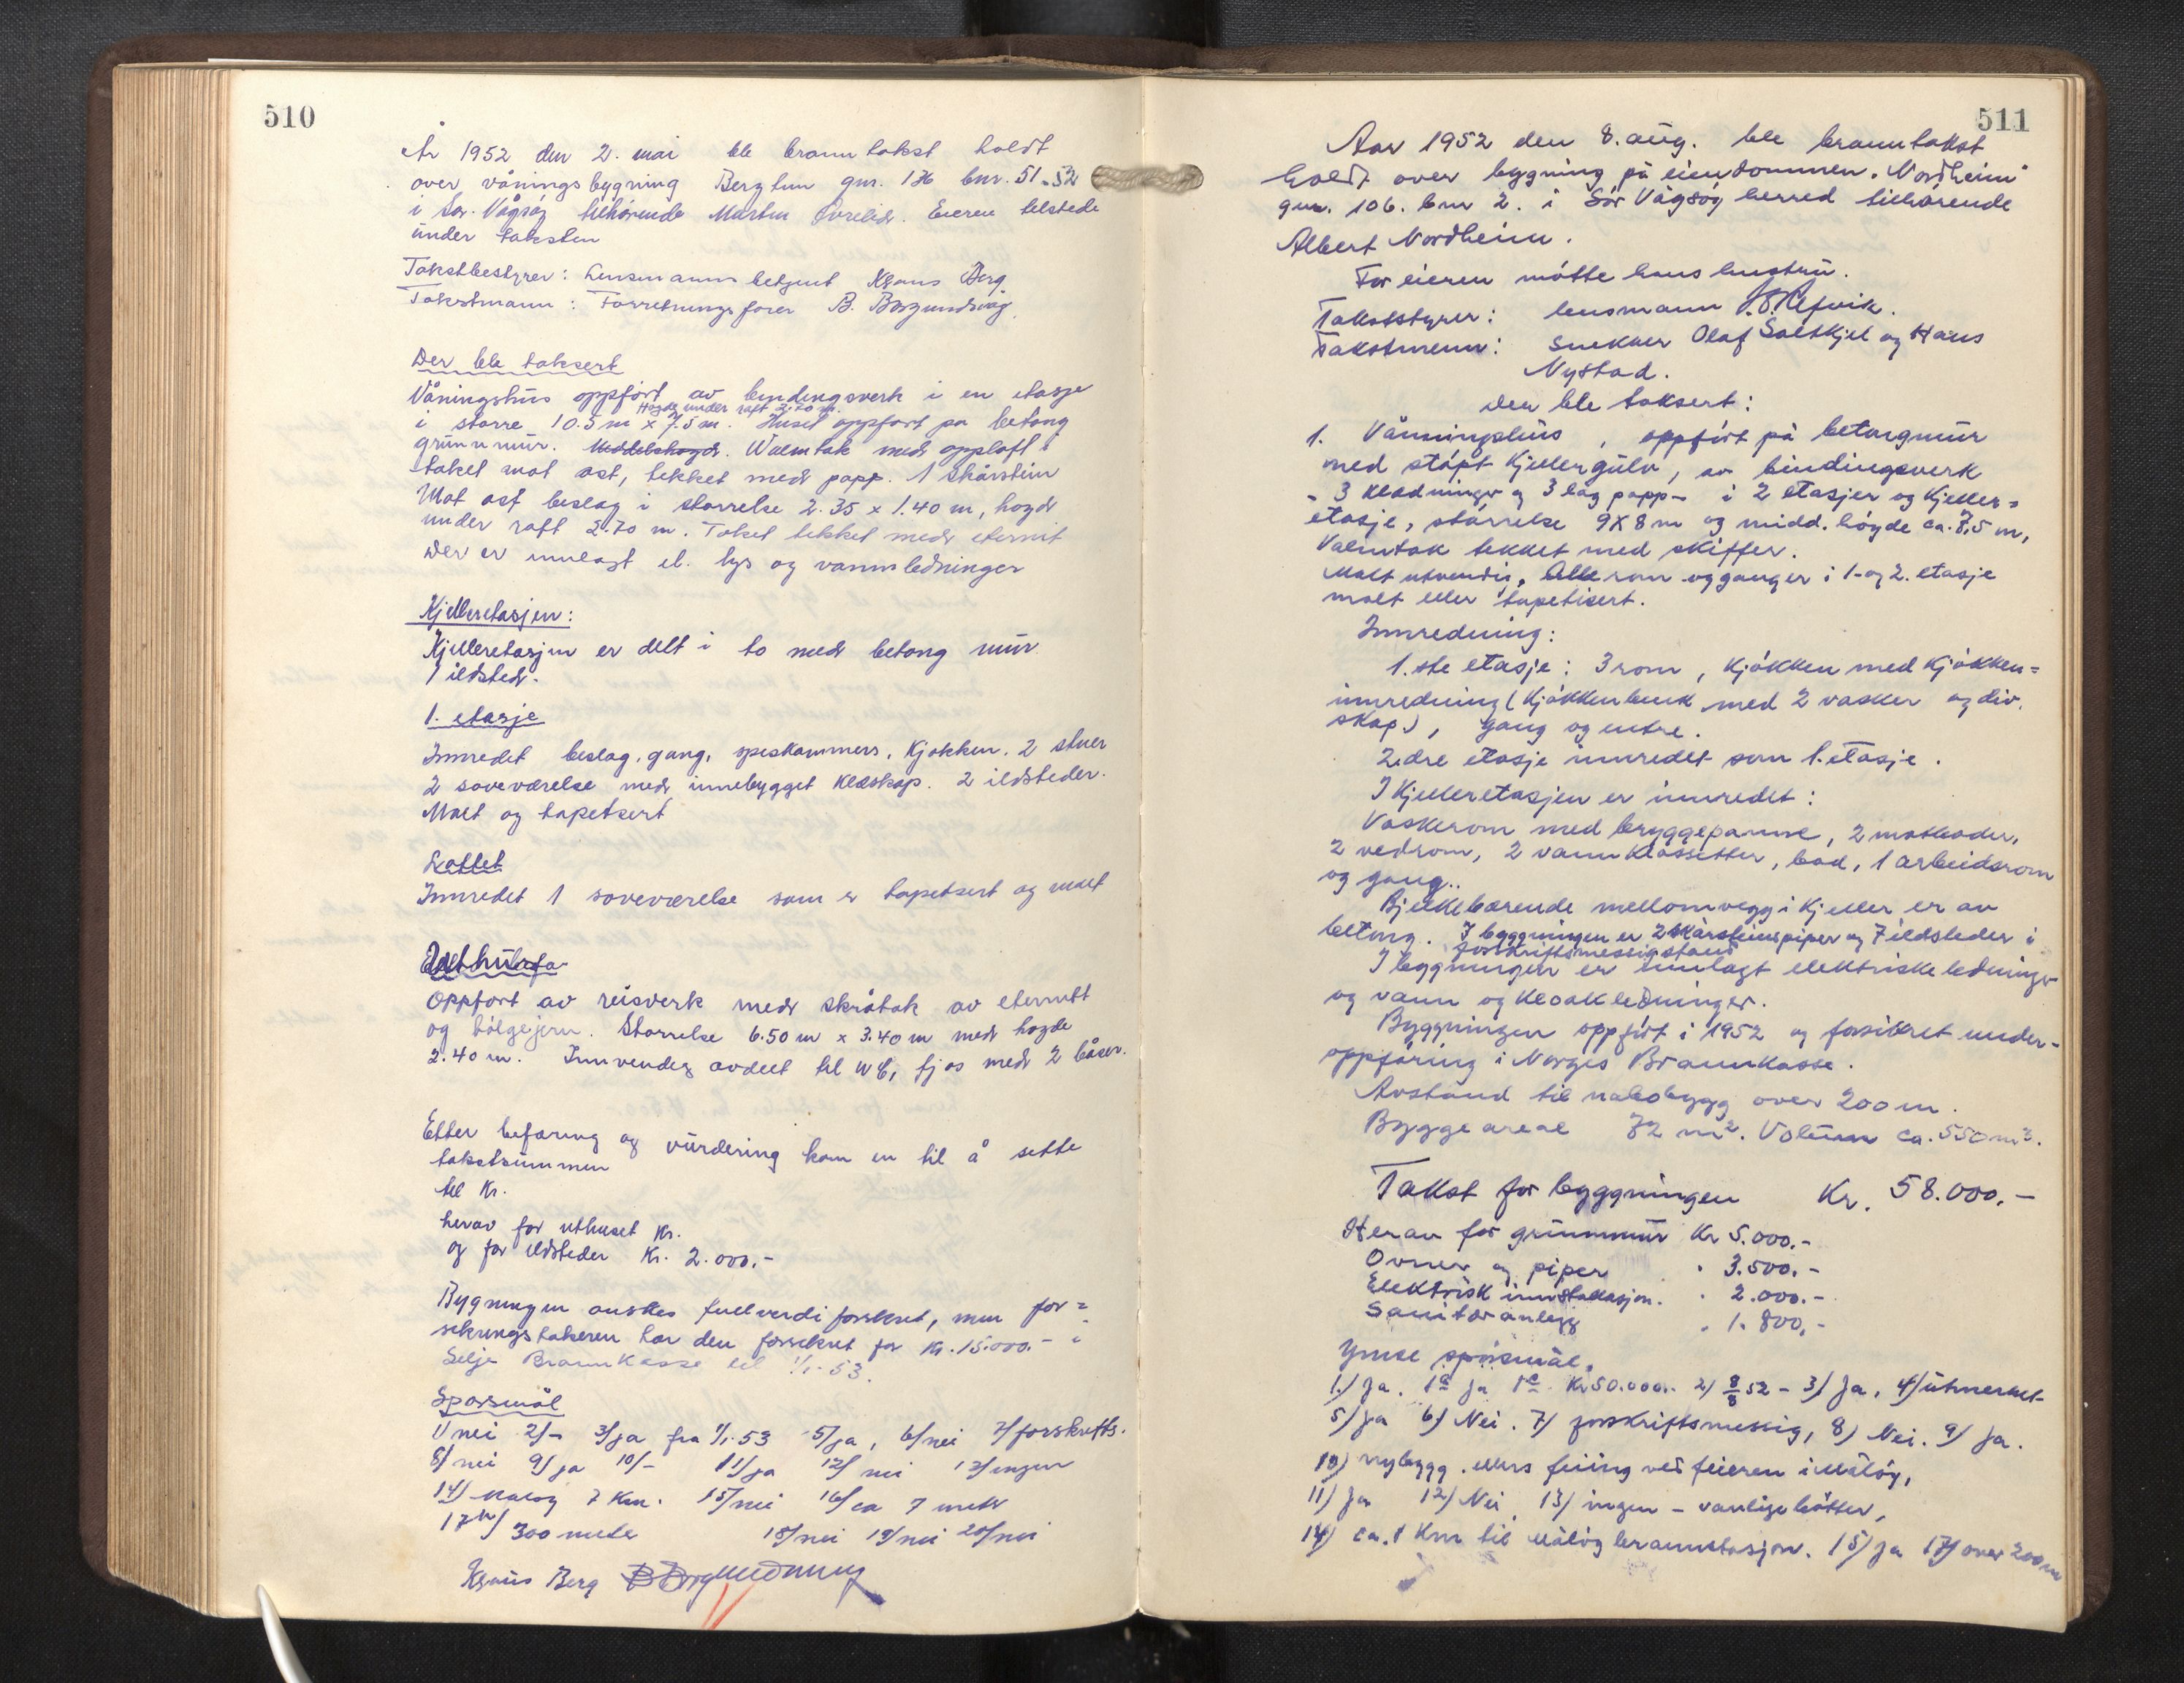 510
År 1952 den 2. mai ble branntakst holdt
over våningsbygning Bergtun gnr. 136 bnr. 51-52
i Sør. Vågsøy tilhørende Martin Eieren tilstede
under taksten
Takstbestyrer: Lensmannsbetjent Klaus Berg
Takstmann: Forretningsfører B. Borgundvåg.
Der ble taksert
Våningshus oppført av bindingsverk i en etasje
Høgde under raft 2.70 m.
i større 10.5 m x 7.5 m. Huset oppført på betong
grunnmur. Middelshøgde. Walmtak med opploft i
taket mot øst, tekket med papp. 1 skårstein
Mot øst beslag i størrelse 2.35 x 1.40 m, høyde
under raft 2.70 m. Taket tekket med eternit
Der er innlagt el. lys og vannledninger
Kjelleretasjen:
Kjelleretasjen er delt i to med betong mur
1 ildsted.
1. etasje
Innredet beslag, gang, speskammers, kjøkken, 2 stuer
2 soveværelse med innebygget klæskap. 2 ildsteder.
Malt og tapetsert
Loftet
Innredet 1 soveværelse som er tapetsert og malt
Uthus
Oppført av reisverk med skråtak av eternitt
og bølgejern. Størrelse 6.50 m x 3.40 m med høgde
2.40 m. Innvendig avdelt til WC, fjøs med 2 båser.
Etter befaring og vurdering kom en til å sette
takstsummen
til kr.
herav for uthuset kr.
og for ildsteder kr. 2.000.-
Bygningen ønskes fullverdiforsikret, men for=
sikringstakeren har den forsikret for kr. 15.000.- i
Selje Brannkasse til 1/1-53.
Spørsmål
1/ nei 2/- 3/ja fra 1/1-53 5/ja, 6/nei 7/forskrifts.
8/ nei 9/ja 10/- 11/ja 12/ nei 13/ingen
14/ Måløy 7 km. 15/nei 16/ca 7 meter
17/ 300 meter 18/nei 19/nei 20/nei
Klaus Berg B Borgundvåg
511
Aar 1952 den 8. aug. ble branntakst
holdt over bygning på eiendommen "Nordheim"
gnr. 106. bnr 2. i Sør Vågsøy herred tilhørende
Albert Nordheim.
For eieren møtte hans hustru.
Takststyrer: lensmann Refvik.
Takstmenn: snekker Olaf Saltkjel og Hans
Nystad.
Der ble taksert:
1. Våningshus, oppført på betongmur
med støpt kjellergulv, av bindingsverk
- 3 kledninger og 3 lag papp - i 2 etasjer og kjeller=
etasje, størrelse 9x8 m og midd. høyde ca. 7,5 m,
Valmtak tekket med skiffer.
Malt utvendig. Alle rom og ganger i 1- og 2. etasje
malt eller tapetisert.
Innredning:
1.ste etasje: 3 rom, kjøkken med kjøkken=
innredning (kjøkkenbenk med 2 vasker og div.
skap), gang og entre.
2.dre etasje innredet som 1. etasje.
I kjelleretasjen er innredet:
Vaskerom med bryggepanne, 2 matboder,
2 vedrom, 2 vannklossetter, bad, 1 arbeidsrom
og gang..
Bjelkebærende mellomvegg i kjeller er av
betong. I byggningen er 2 skårsteinspiper og 7 ildsteder i
forskriftsmessig stand
I bygningen er innlagt elektriske ledninger
og vann og kloakkledninger.
Byggningen oppført i 1952 og forsikret under-
oppføring i Norges Brannkasse.
Avstand til nabobygg over 200 m.
Bygge areal 72 m². Volum ca. 550 m³.
Takst for byggningen Kr. 58.000.-
Herav for grunnmur Kr 5.000.-
Ovner og piper " 3.500.-
Elektrisk innstallasjon. " 2.000.-
Sanitæranlegg " 1.800,-
Ymse spørsmål.
1./ Ja. 1a ja 1c Kr 50.000.- 2/ 8/8 52 - 3/ Ja, 4/ utmerket-
5/ ja 6/ Nei. 7/ forskriftsmessig, 8/ Nei. 9/ Ja.
10/ nybygg. ellers feiing ved feieren i Måløy,
11/ Ja 12/ Nei 13/ ingen - vanlige bøtter,
14/ ca. 1 km til Måløy brannstasjon. 15/ ja 17/ over 200 m